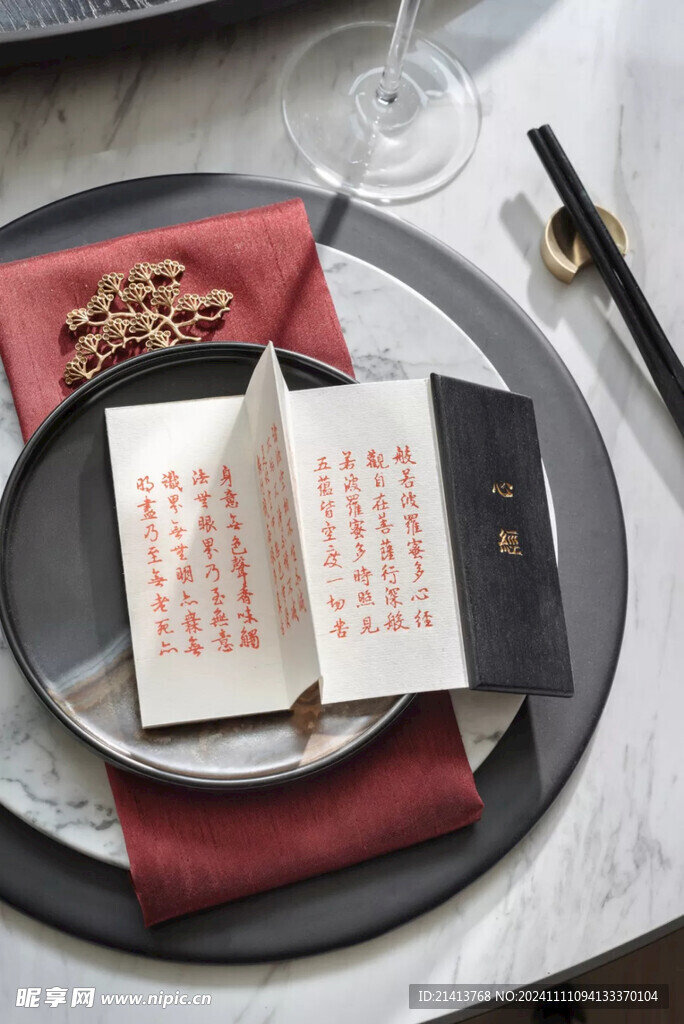 心經
般若波羅蜜多心经
觀自在菩薩行深般
若波羅蜜多時照見
五蘊皆空度一切苦
身意無色聲香味觸
法無眼界乃至無意
識界無無明亦無無
明盡乃至無老死亦
昵享网 www.nipic.cn
ID:21413768 NO:20241111094133370104